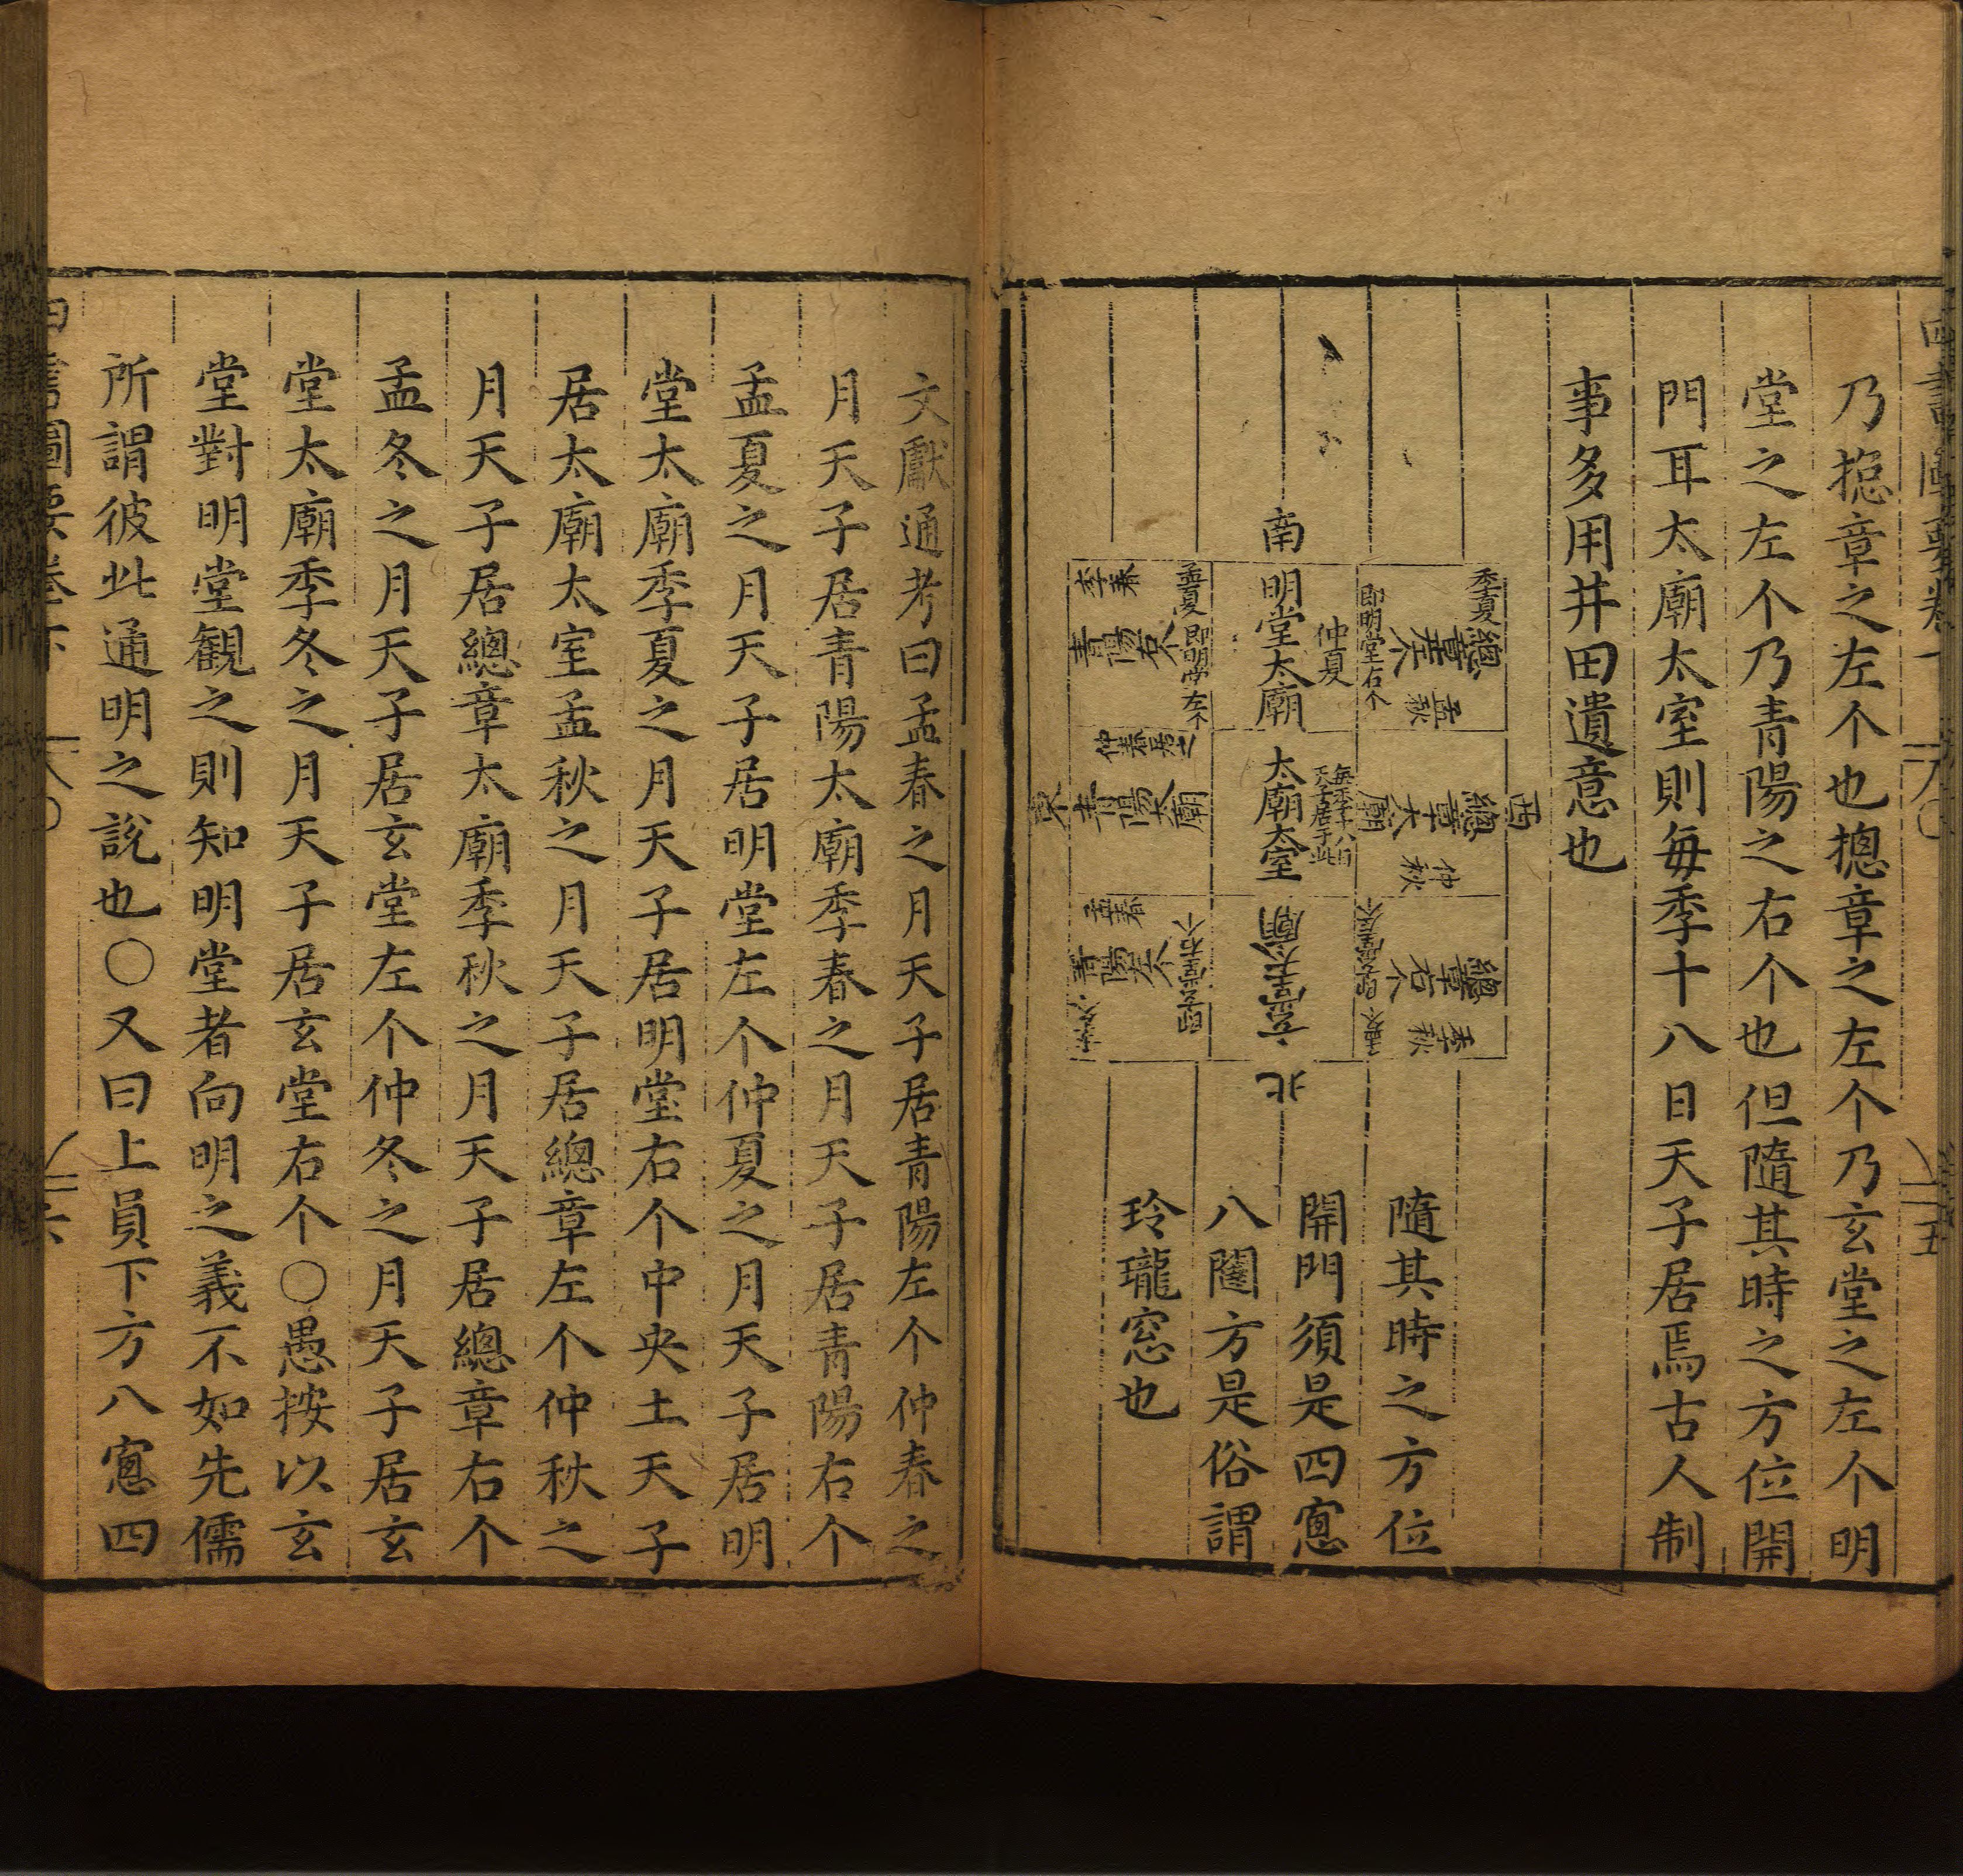 乃摠章之左个也摠章之左个乃玄堂之左个明
堂之左个乃青陽之右个也但隨其時之方位開
門耳太廟太室則每季十八日天子居焉古人制
事多用井田遺意也
季夏
總章左个
孟秋
即明堂右个
南
仲夏
明堂太廟
孟夏
即明堂左个
季春
青陽右个
西
總章太廟
仲秋
太廟太室
仲春居之
青陽太廟
東
總章右个
季秋
玄堂太廟
孟春
青陽左个
北
隨其時之方位
開門須是四窻
八闥方是俗謂
玲瓏窓也
文獻通考曰孟春之月天子居青陽左个仲春之
月天子居青陽太廟季春之月天子居青陽右个
孟夏之月天子居明堂左个仲夏之月天子居明
堂太廟季夏之月天子居明堂右个中央土天子
居太廟太室孟秋之月天子居總章左个仲秋之
月天子居總章太廟季秋之月天子居總章右个
孟冬之月天子居玄堂左个仲冬之月天子居玄
堂太廟季冬之月天子居玄堂右个○愚按以玄
堂對明堂觀之則知明堂者向明之義不如先儒
所謂彼此通明之說也○又曰上員下方八窻四